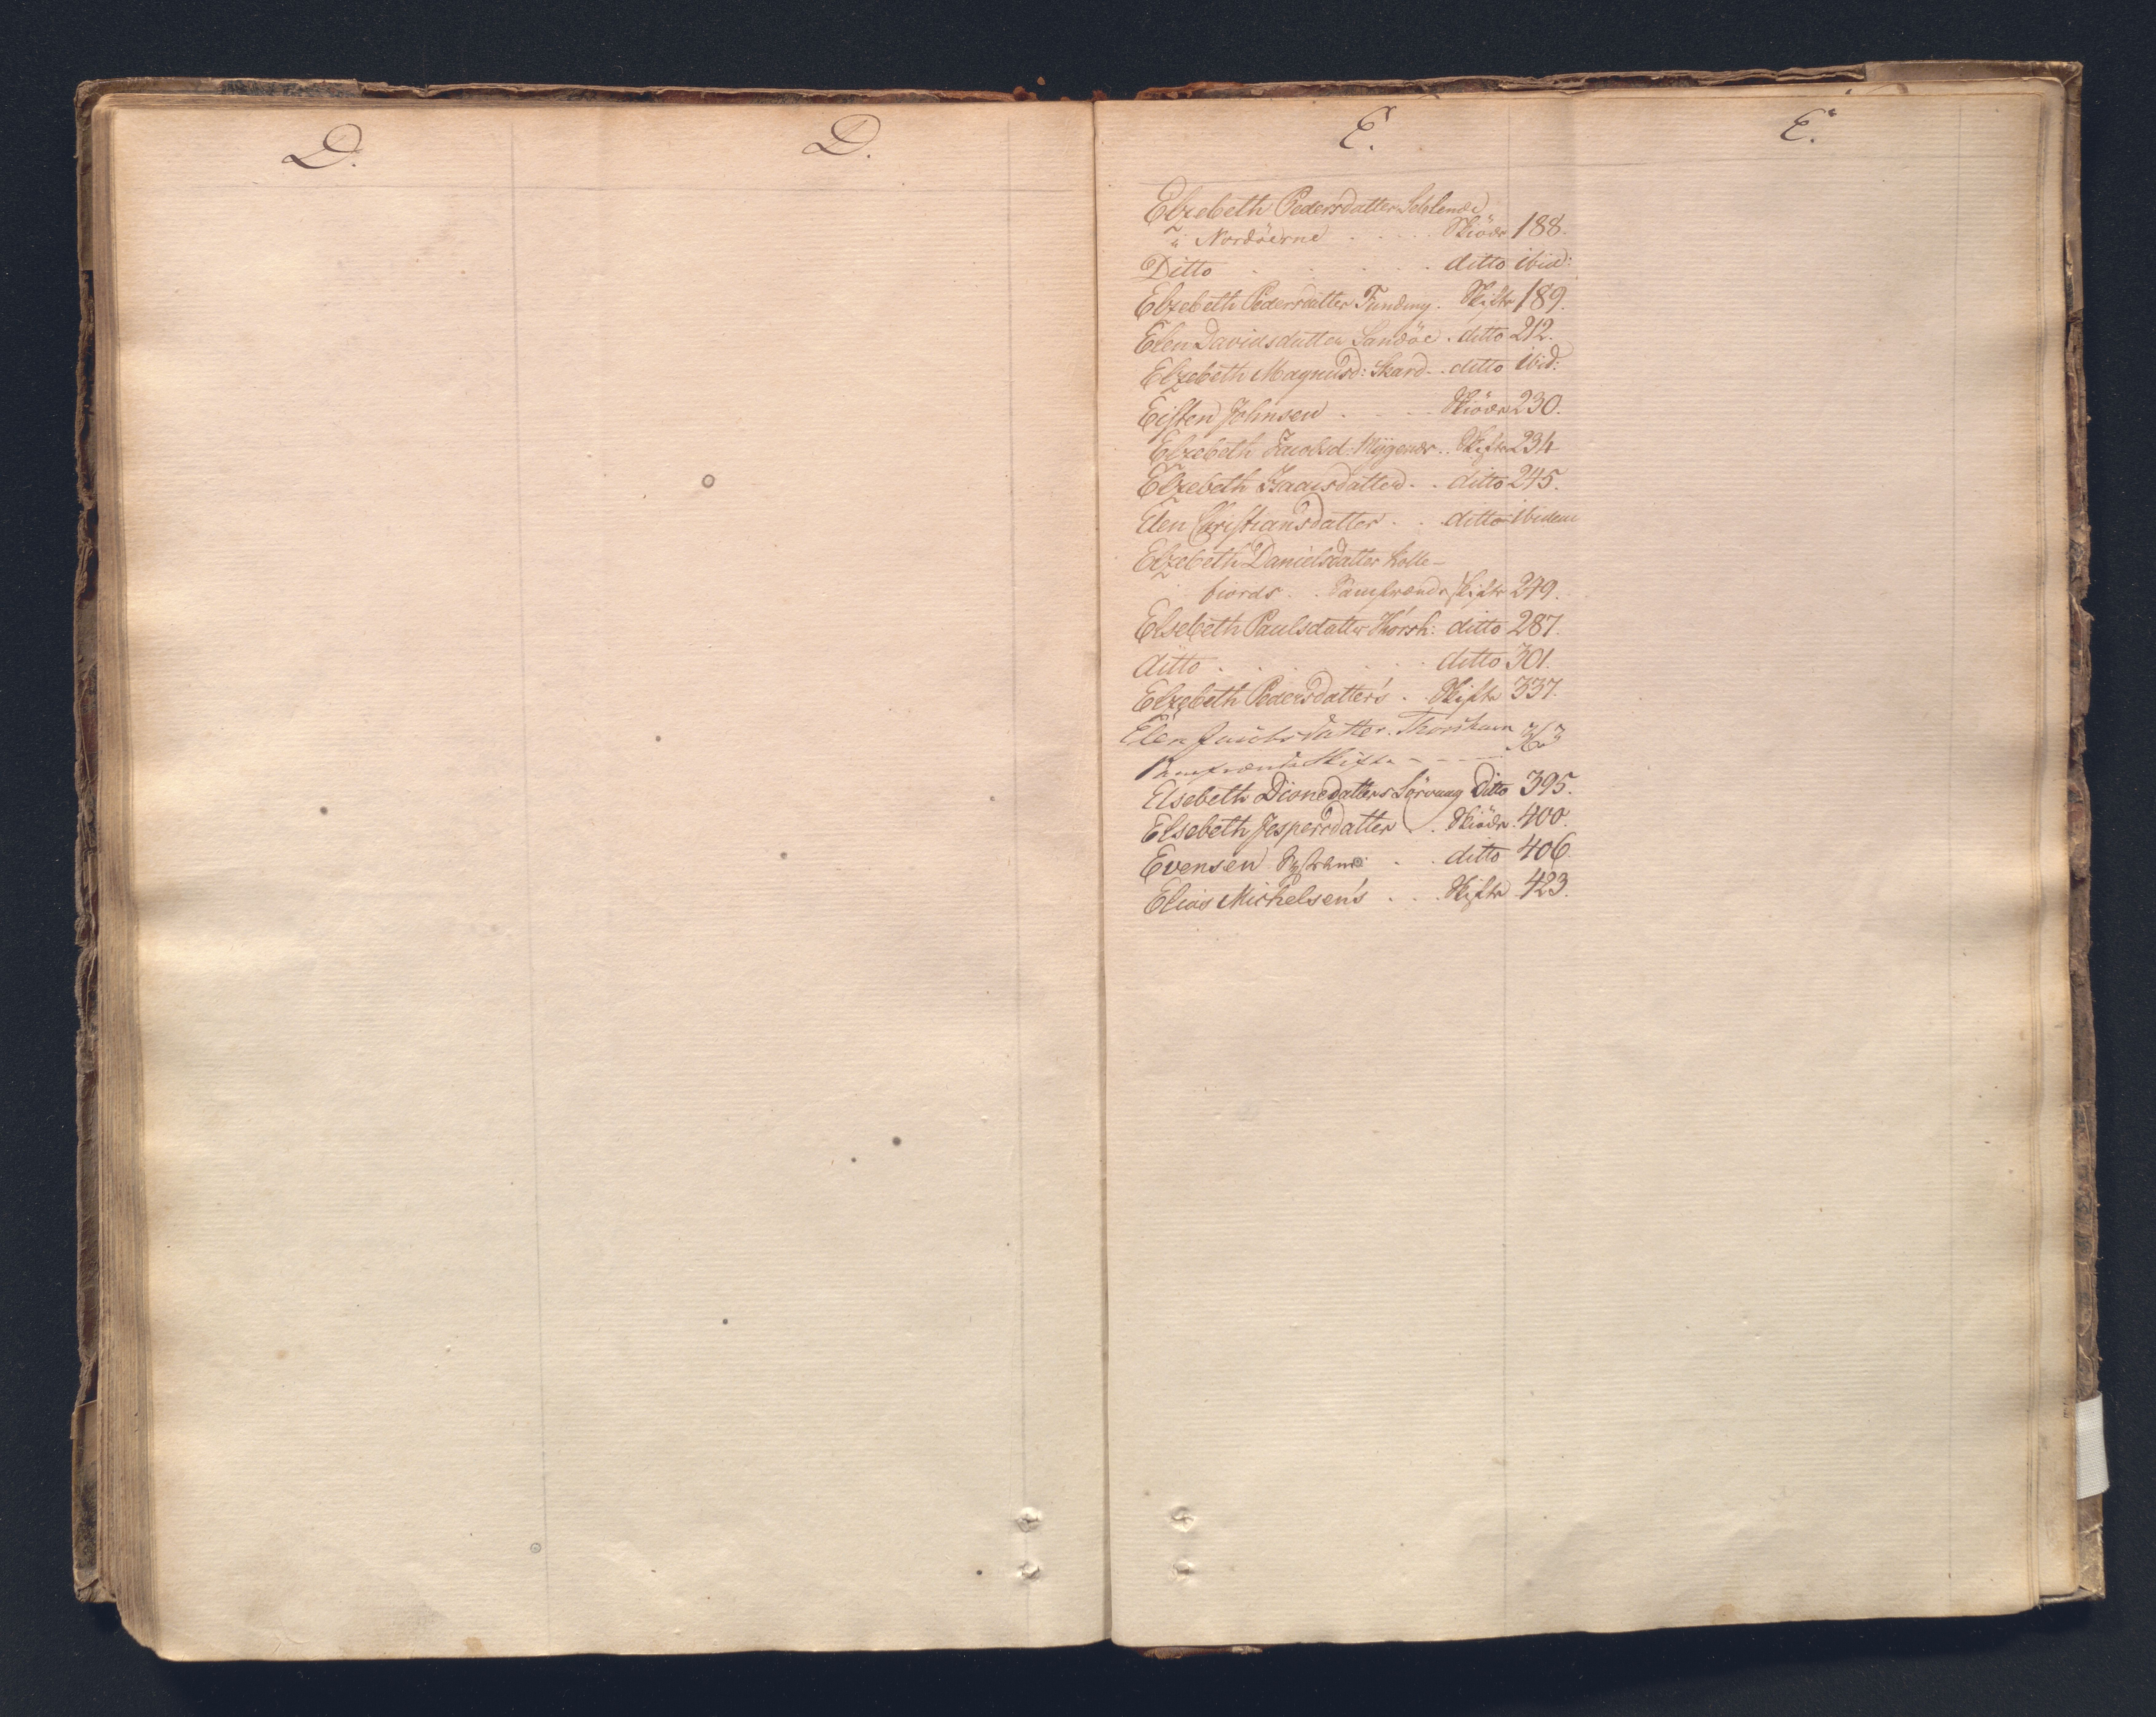 D.
D.
E.
E.
Elzebeth Pedersdatter
i Norderne . . . . Skiöde 188.
Ditto . . . . . ditto ibid:
Elzebeth Pedersdatter Funding. Skifte 189.
Elen Davidsdatter Sandöe . ditto 212.
Elzebeth Magnusd: Skard . . ditto ibid:
Eisten Johnsen . . . Skiöde 230.
Elzebeth Jacobsd: Myggenæs . . Skifte 234
Elzebeth Isaacsdatter . . ditto 245.
Elen Christiansdatter . . ditto ibidem
Elzebeth Danielsdatter Kolle-
fiords . . Samfrænde Skifte 249.
Elsebeth Paulsdatter Thorsh: ditto 287.
ditto . . . . . ditto 301.
Elzebeth Pedersdatter's . Skifte 337.
Elen Jacobsdatter. Thorshavn
Samfrænde Skifte - - - -
Elsebeth Dionedatters Sörvaag Ditto 395.
Elsebeth Jespersdatter . . Skiöde 400.
Evensen . . ditto 406.
Elias Michelsen's . . . Skifte 423.